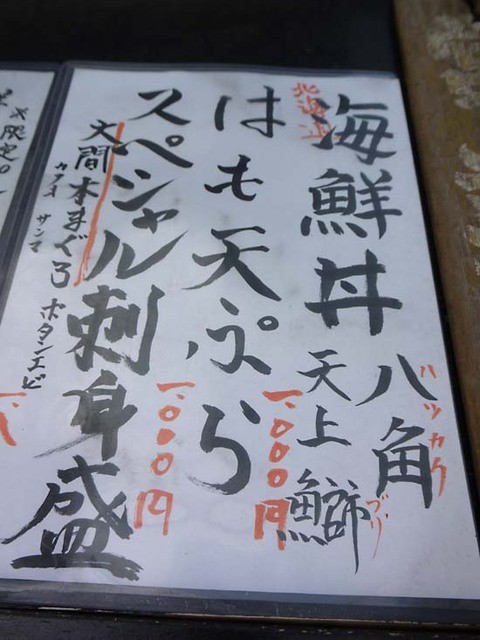 北海道
海鮮丼
八角
ハッカク
天上鰤
ブリ
はも天ぷら
一、〇〇〇円
スペシャル刺身盛
一、〇〇〇円
大間本まぐろ ボタンエビ
カツオ サンマ